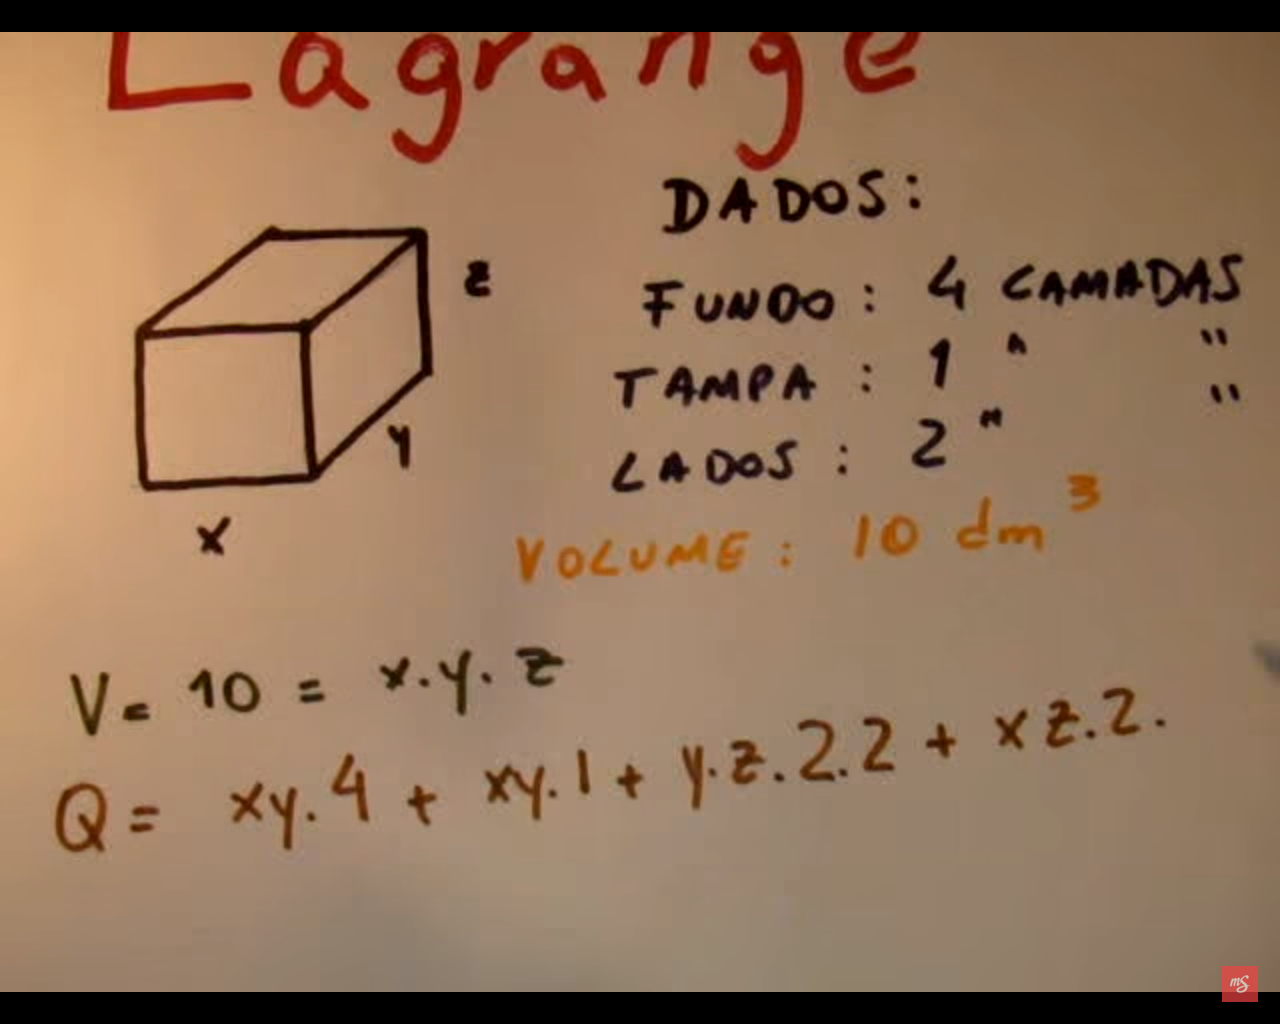 Lagrange
DADOS:
FUNDO: 4 CAMADAS
TAMPA: 1 " "
LADOS: 2 " "
VOLUME: 10 dm³
z
y
x
V = 10 = x.y.z
Q = xy.4 + xy.1 + y.z.2.2 + xz.2.
mS